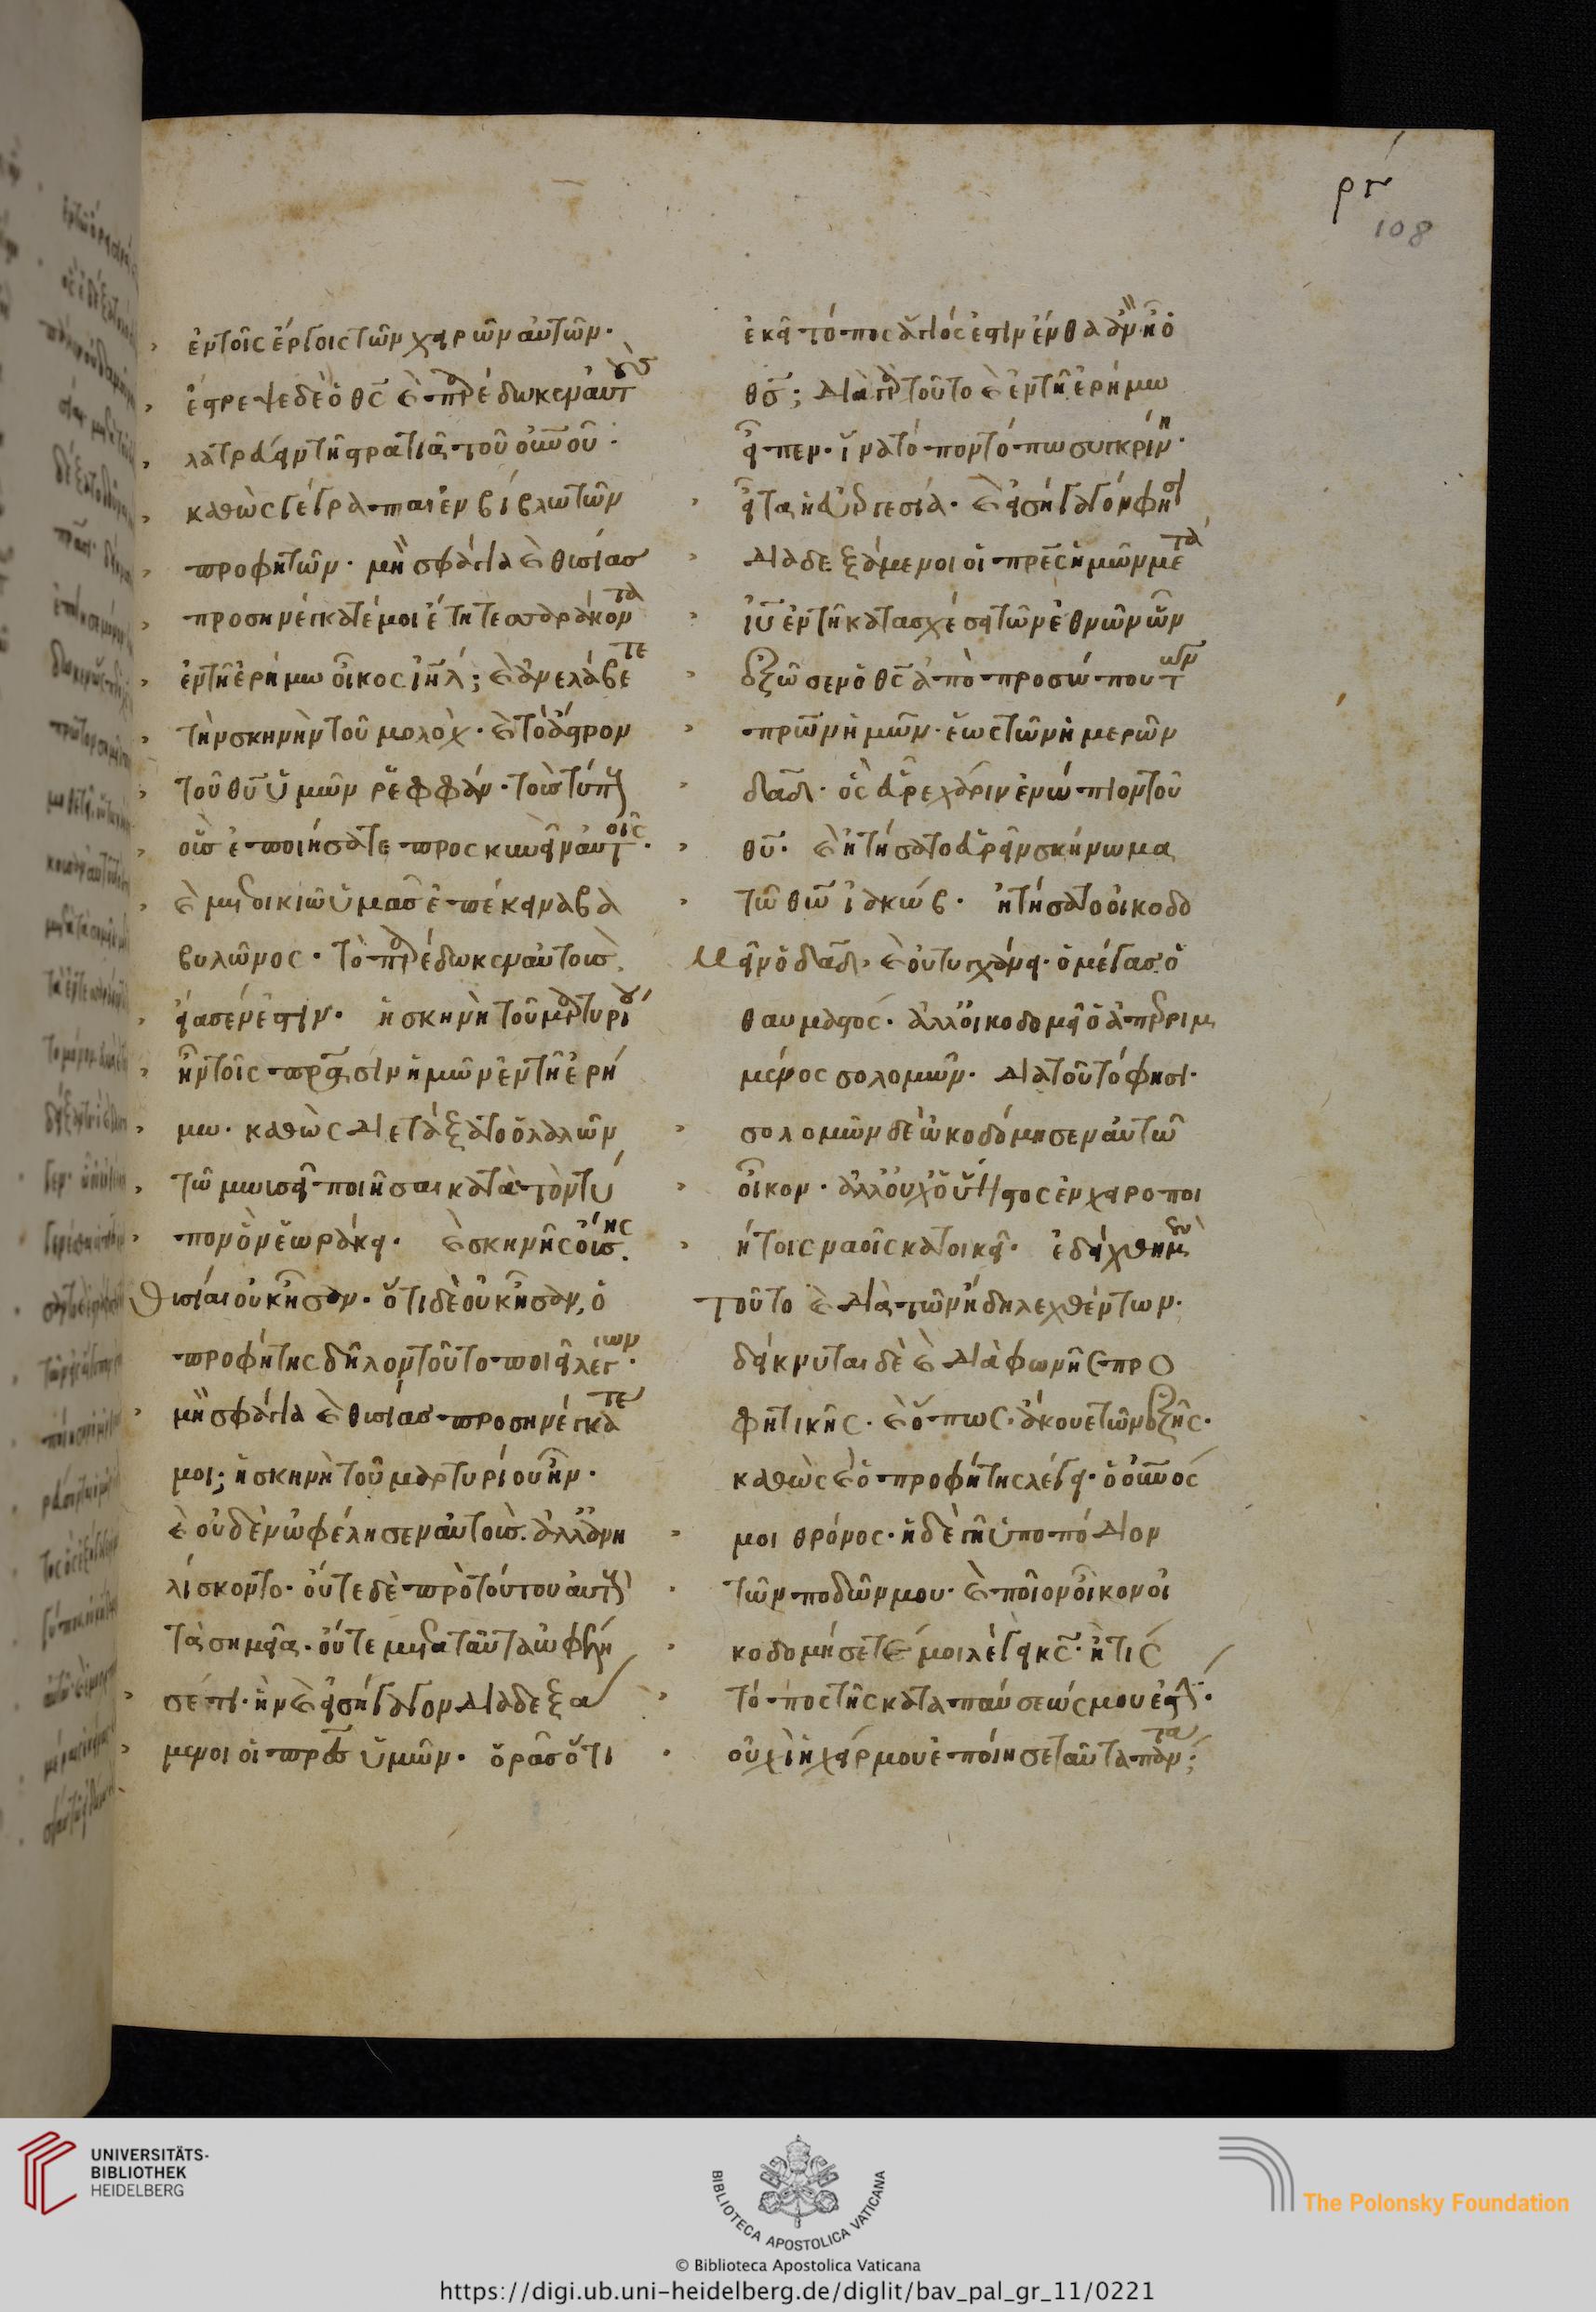 ρη
108
ἐν τοῖς ἔργοις τῶν χειρῶν αὐτῶν·
ἔστρεψε δὲ ὁ θς καὶ παρέδωκεν αὐτοὺσ
λατρεύειν τῆ στρατιᾶ τοῦ οὐνοῦ·
καθὼς γέγραπται ἐν βίβλω τῶν
προφητῶν· μὴ σφάγια καὶ θυσίασ
προσηνέγκατέ μοι ἔτη τεσσαράκοντα
ἐν τῆ ἐρήμω οἶκος ιηλ; καὶ ἀνελάβετε
τὴν σκηνὴν τοῦ μολὸχ· καὶ τὸ ἄστρον
τοῦ θυ ὑμῶν ῥεφφάν· τοὺς τύπους
οὓσ ἐποιήσατε προσκυνεῖν αὐτοῖς·
καὶ μετοικιῶ ὑμᾶσ ἐπέκεινα βα
βυλῶνος· τὸ παρέδωκεν αὐτοὺσ,
εἴασέν ἐστιν· ἡ σκηνὴ τοῦ μαρτυρίου
ἦν τοῖς πράσιν ἡμῶν ἐν τῆ ἐρή
μω· καθὼς διετάξατο ὁ λαλῶν
τῶ μωυσῆ ποιῆσαι κατὰ τὸν τύ
πον ὃν ἑωράκει· καὶ σκηνῆς οὔσης
θυσίαι οὐκ ἦσαν· ὅτι δὲ οὐκ ἦσαν, ὁ
προφήτης δῆλον τοῦτο ποιεῖ λέγων·
μὴ σφάγια καὶ θυσίασ προσηνέγκατέ
μοι; ἡ σκηνὴ τοῦ μαρτυρίου ἦν·
καὶ οὐδὲν ὠφέλησεν αὐτοὺσ· ἀλλ' ἀνη
λίσκοντο· οὔτε δὲ πρὸ τούτου αὐτοὺς
τὰ σημεῖα· οὔτε μετὰ ταῦτα ὠφέλη
σέ τι· ἣν καὶ εἰσήγαγον διαδεξά
μενοι οἱ πρεσ ὑμῶν· ὁρᾶσ ὅτι
ἐκεῖ τόπος ἅγιός ἐστιν ἔνθα ἂν ἦ ὁ
θσ; διὰ γὰρ τοῦτο καὶ ἐν τῆ ἐρήμω
εἶπεν· ἵνα τόπον τόπω συγκρίνη·
εἶτα ἡ εὐεργεσία· καὶ εἰσήγαγόν φησι
διαδεξάμενοι οἱ πρες ἡμῶν μετὰ
ιυ ἐν τῆ κατασχέσει τῶν ἐθνῶν ὧν
ἐξῶσεν ὁ θς ἀπὸ προσώπου τῶν
πρων ἡμῶν· ἕως τῶν ἡμερῶν
δαδ· ὃς εὗρε χάριν ἐνώπιον τοῦ
θυ· καὶ ἠτήσατο εὑρεῖν σκήνωμα
τῶ θω ἰακώβ· ἠτήσατο οἰκοδο
μεῖν ὁ δαδ· καὶ οὐ τυγχάνει· ὁ μέγασ· ὁ
θαυμαστός· ἀλλ' οἰκοδομεῖ ὁ ἀπερριμ
μένος σολομῶν· διὰ τοῦτό φησι·
σολομῶν δὲ ὠκοδόμησεν αὐτῶ
οἶκον· ἀλλ' οὐχ ὁ ὕψιστος ἐν χειροποι
ήτοις ναοῖς κατοικεῖ· ἐδείχθη μὲν
τοῦτο καὶ διὰ τῶν ἤδη λεχθέντων·
δείκνυται δὲ καὶ διὰ φωνῆς προ
φητικῆς· καὶ ὅπως, ἄκουε τῶν ἑξῆς·
καθὼς καὶ ὁ προφήτης λέγει· ὁ οὐνός
μοι θρόνος· ἡ δὲ γῆ ὑποπόδιον
τῶν ποδῶν μου· καὶ ποῖον οἶκον οἰ
κοδομήσετέ μοι λέγει κς· ἢ τίς
τόπος τῆς καταπαύσεώς μου ἐστι·
οὐχὶ ἡ χείρ μου ἐποίησε ταῦτα πάντα;
UNIVERSITÄTS-
BIBLIOTHEK
HEIDELBERG
BIBLIOTECA APOSTOLICA VATICANA
© Biblioteca Apostolica Vaticana
The Polonsky Foundation
https://digi.ub.uni-heidelberg.de/diglit/bav_pal_gr_11/0221